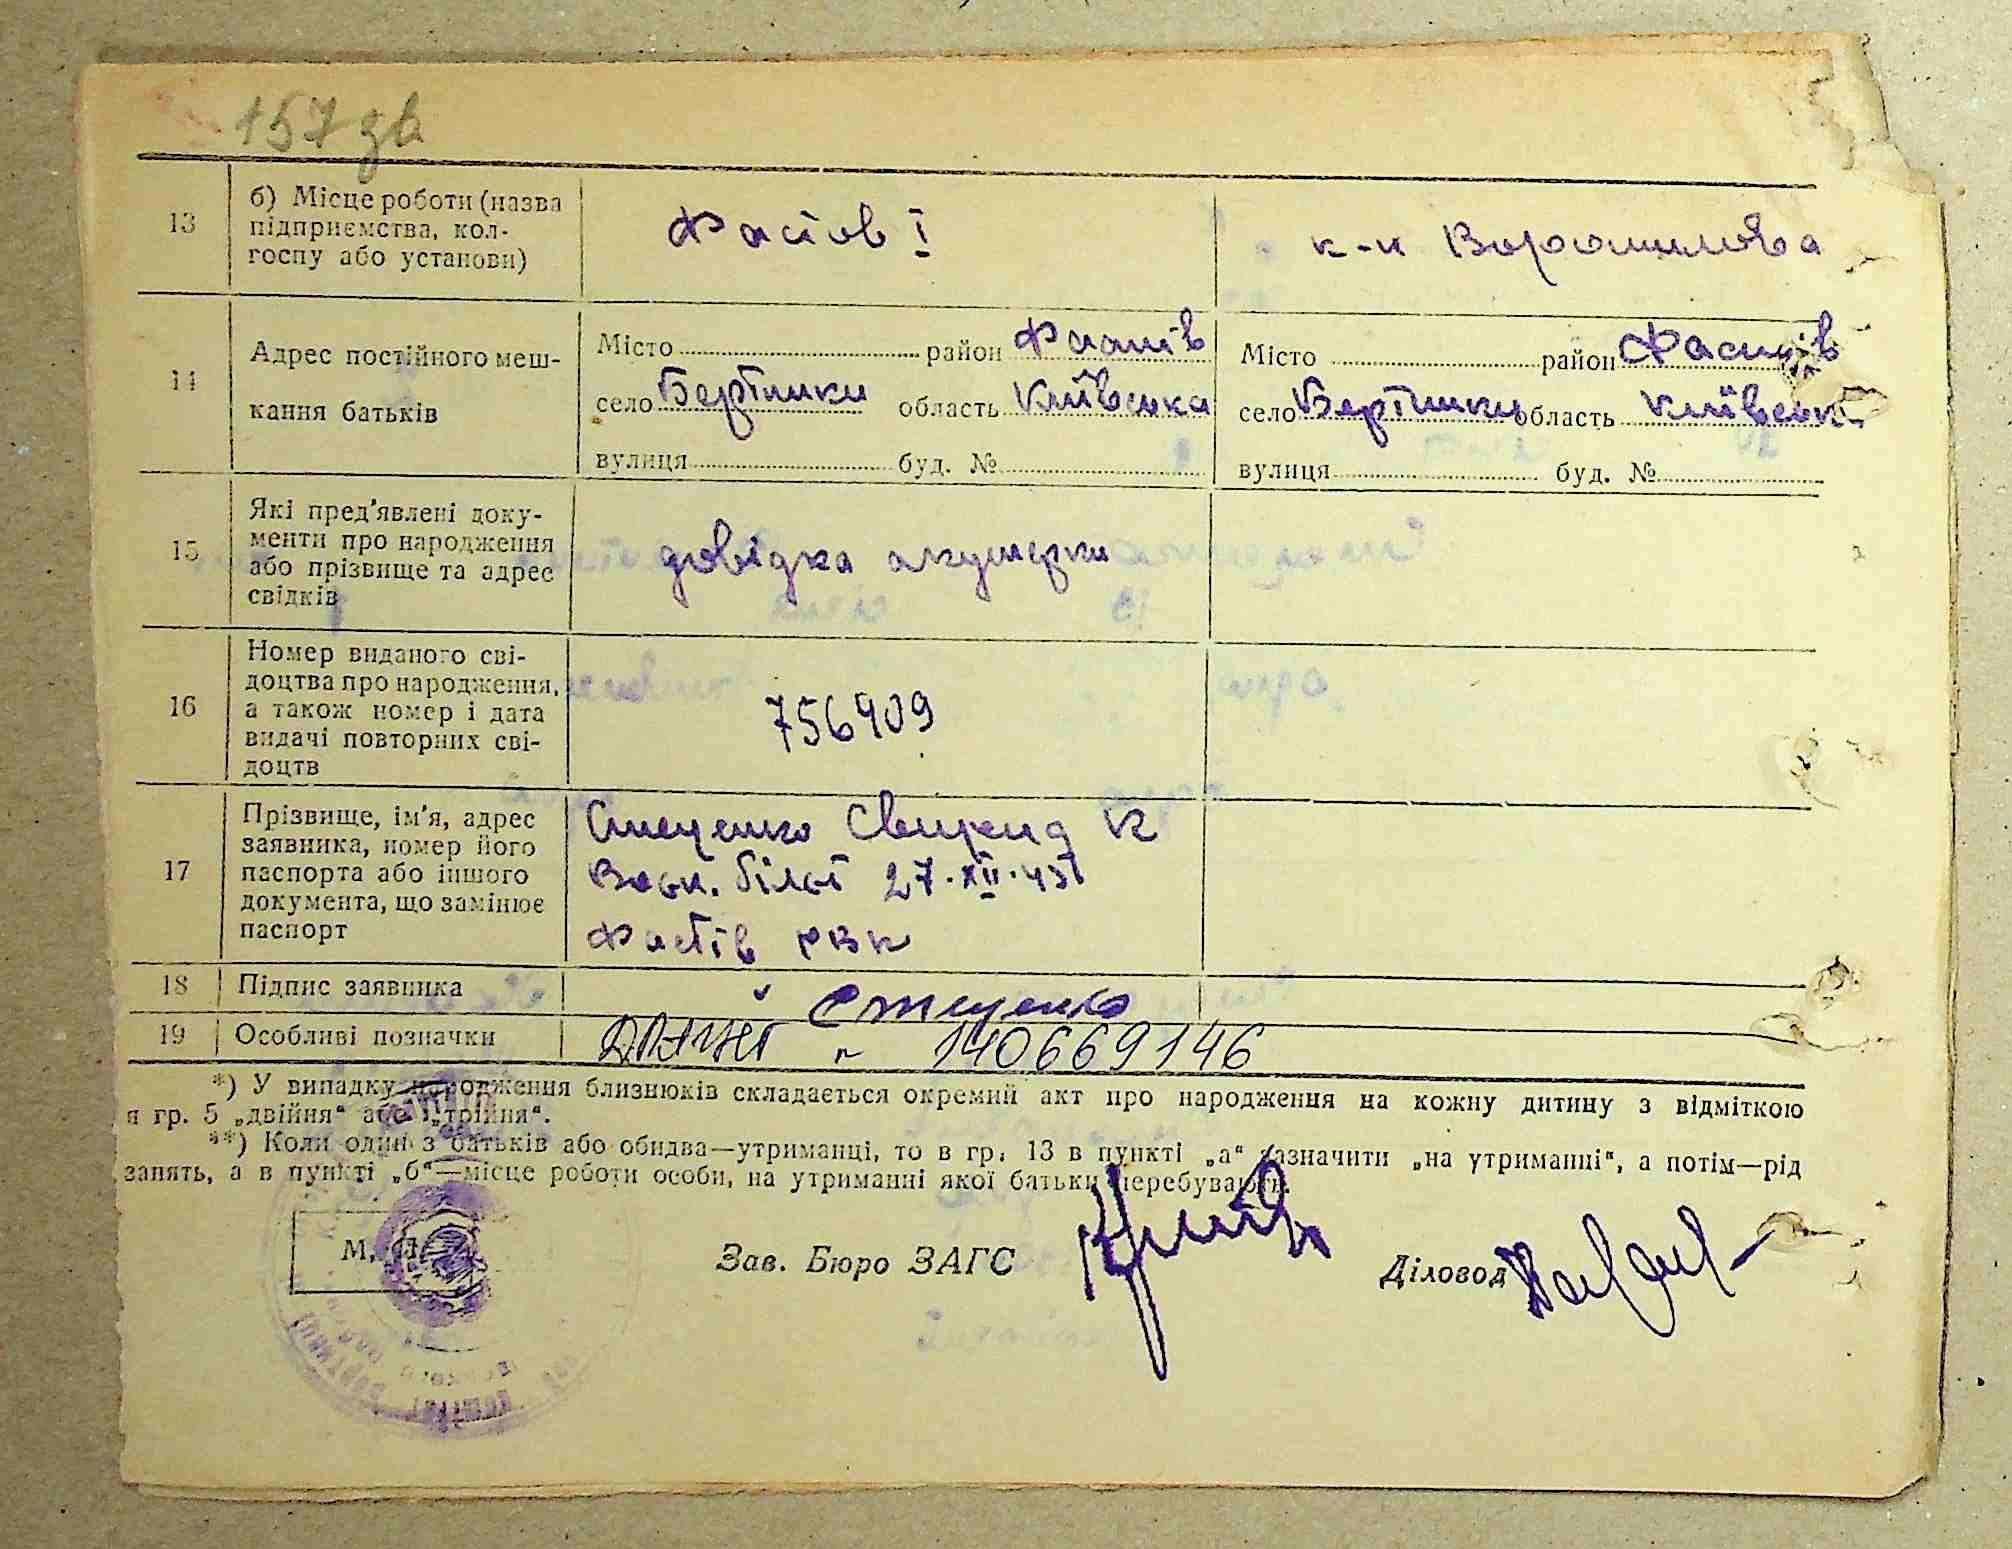 157 зв
13
б) Місце роботи (назва
підприємства, кол-
госпу або установи)
Фастов I
к-п Ворошилова
14
Адрес постійного меш-
кання батьків
Місто район Фастів
село область Київська
вулиця буд. №
Місто район Фастів
село область Київськ
вулиця буд. №
15
Які пред'явлені доку-
менти про народження
або прізвище та адрес
свідків
довідка акушерки
16
Номер виданого сві-
доцтва про народження,
а також номер і дата
видачі повторних сві-
доцтв
756909
17
Прізвище, ім'я, адрес
заявника, номер його
паспорта або іншого
документа, що замінює
паспорт
Стеценко К
Воен. білет 27.XII.45
Фастів РВК
18
Підпис заявника
Стеценко
19
Особливі позначки
140669146
*) У випадку народження близнюків складається окремий акт про народження на кожну дитину з відміткою
я гр. 5 „двійня“ або „трійня“.
**) Коли один з батьків або обидва—утриманці, то в гр. 13 в пункті „а“ зазначити „на утриманні“, а потім—рід
занять, а в пункті „б“—місце роботи особи, на утриманні якої батьки перебувають.
М. П.
Зав. Бюро ЗАГС
Діловод